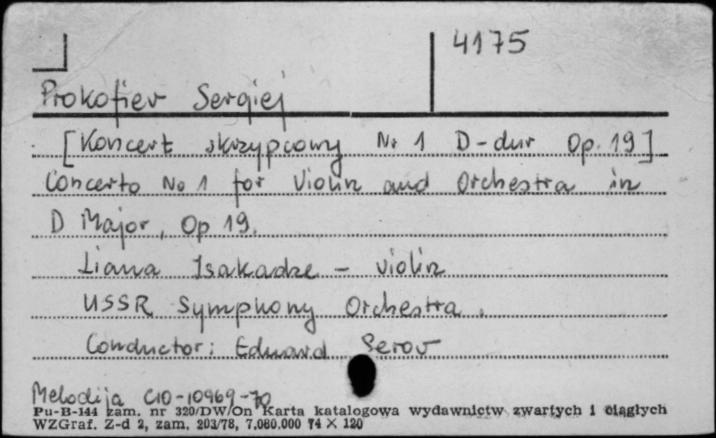 4175
Prokofiev Sergiej
[Koncert skrzypcowy Nr 1 D-dur Op. 19]
Concerto No 1 for Violin and Orchestra in
D Major, Op 19.
Liana Isakadze - violin
USSR Symphony Orchestra.
Conductor: Eduard Serov
Melodija C10-10969-70
Pu-B-144 zam. nr 320/DW/On Karta katalogowa wydawnictw zwartych i ciągłych
WZGraf. Z-d 2, zam. 203/78, 7.080.000 74 × 120